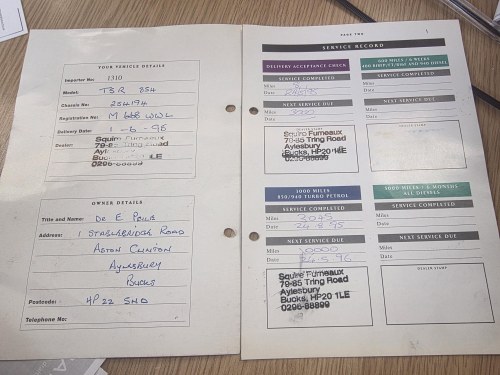 YOUR VEHICLE DETAILS
Importer No: 1310
Model: TSR 854
Chassis No: 234194
Registration No: M 668 WWL
Delivery Date: 1-6-95
Dealer: Squire Furneaux
79-85 Tring Road
Aylesbury
Bucks, HP20 1LE
0296-88899
OWNER DETAILS
Title and Name: DR E
Address: 1 STABLEBRIDGE ROAD
ASTON CLINTON
AYLESBURY
BUCKS
Postcode: HP22 5ND
Telephone No:
PAGE TWO
SERVICE RECORD
DELIVERY ACCEPTANCE CHECK
SERVICE COMPLETED
Miles
Date
NEXT SERVICE DUE
Miles 3000
Date
Squire Furneaux
79-85 Tring Road
Aylesbury
Bucks, HP20 1LE
0296-88899
SERVICE COMPLETED
Miles
Date
NEXT SERVICE DUE
Miles
Date
DEALER STAMP
3000 MILES
SERVICE COMPLETED
Miles 3045
Date 24.8.95
NEXT SERVICE DUE
Miles
Date
Squire Furneaux
79-85 Tring Road
Aylesbury
Bucks, HP20 1LE
0296-88899
SERVICE COMPLETED
Miles
Date
NEXT SERVICE DUE
Miles
Date
DEALER STAMP